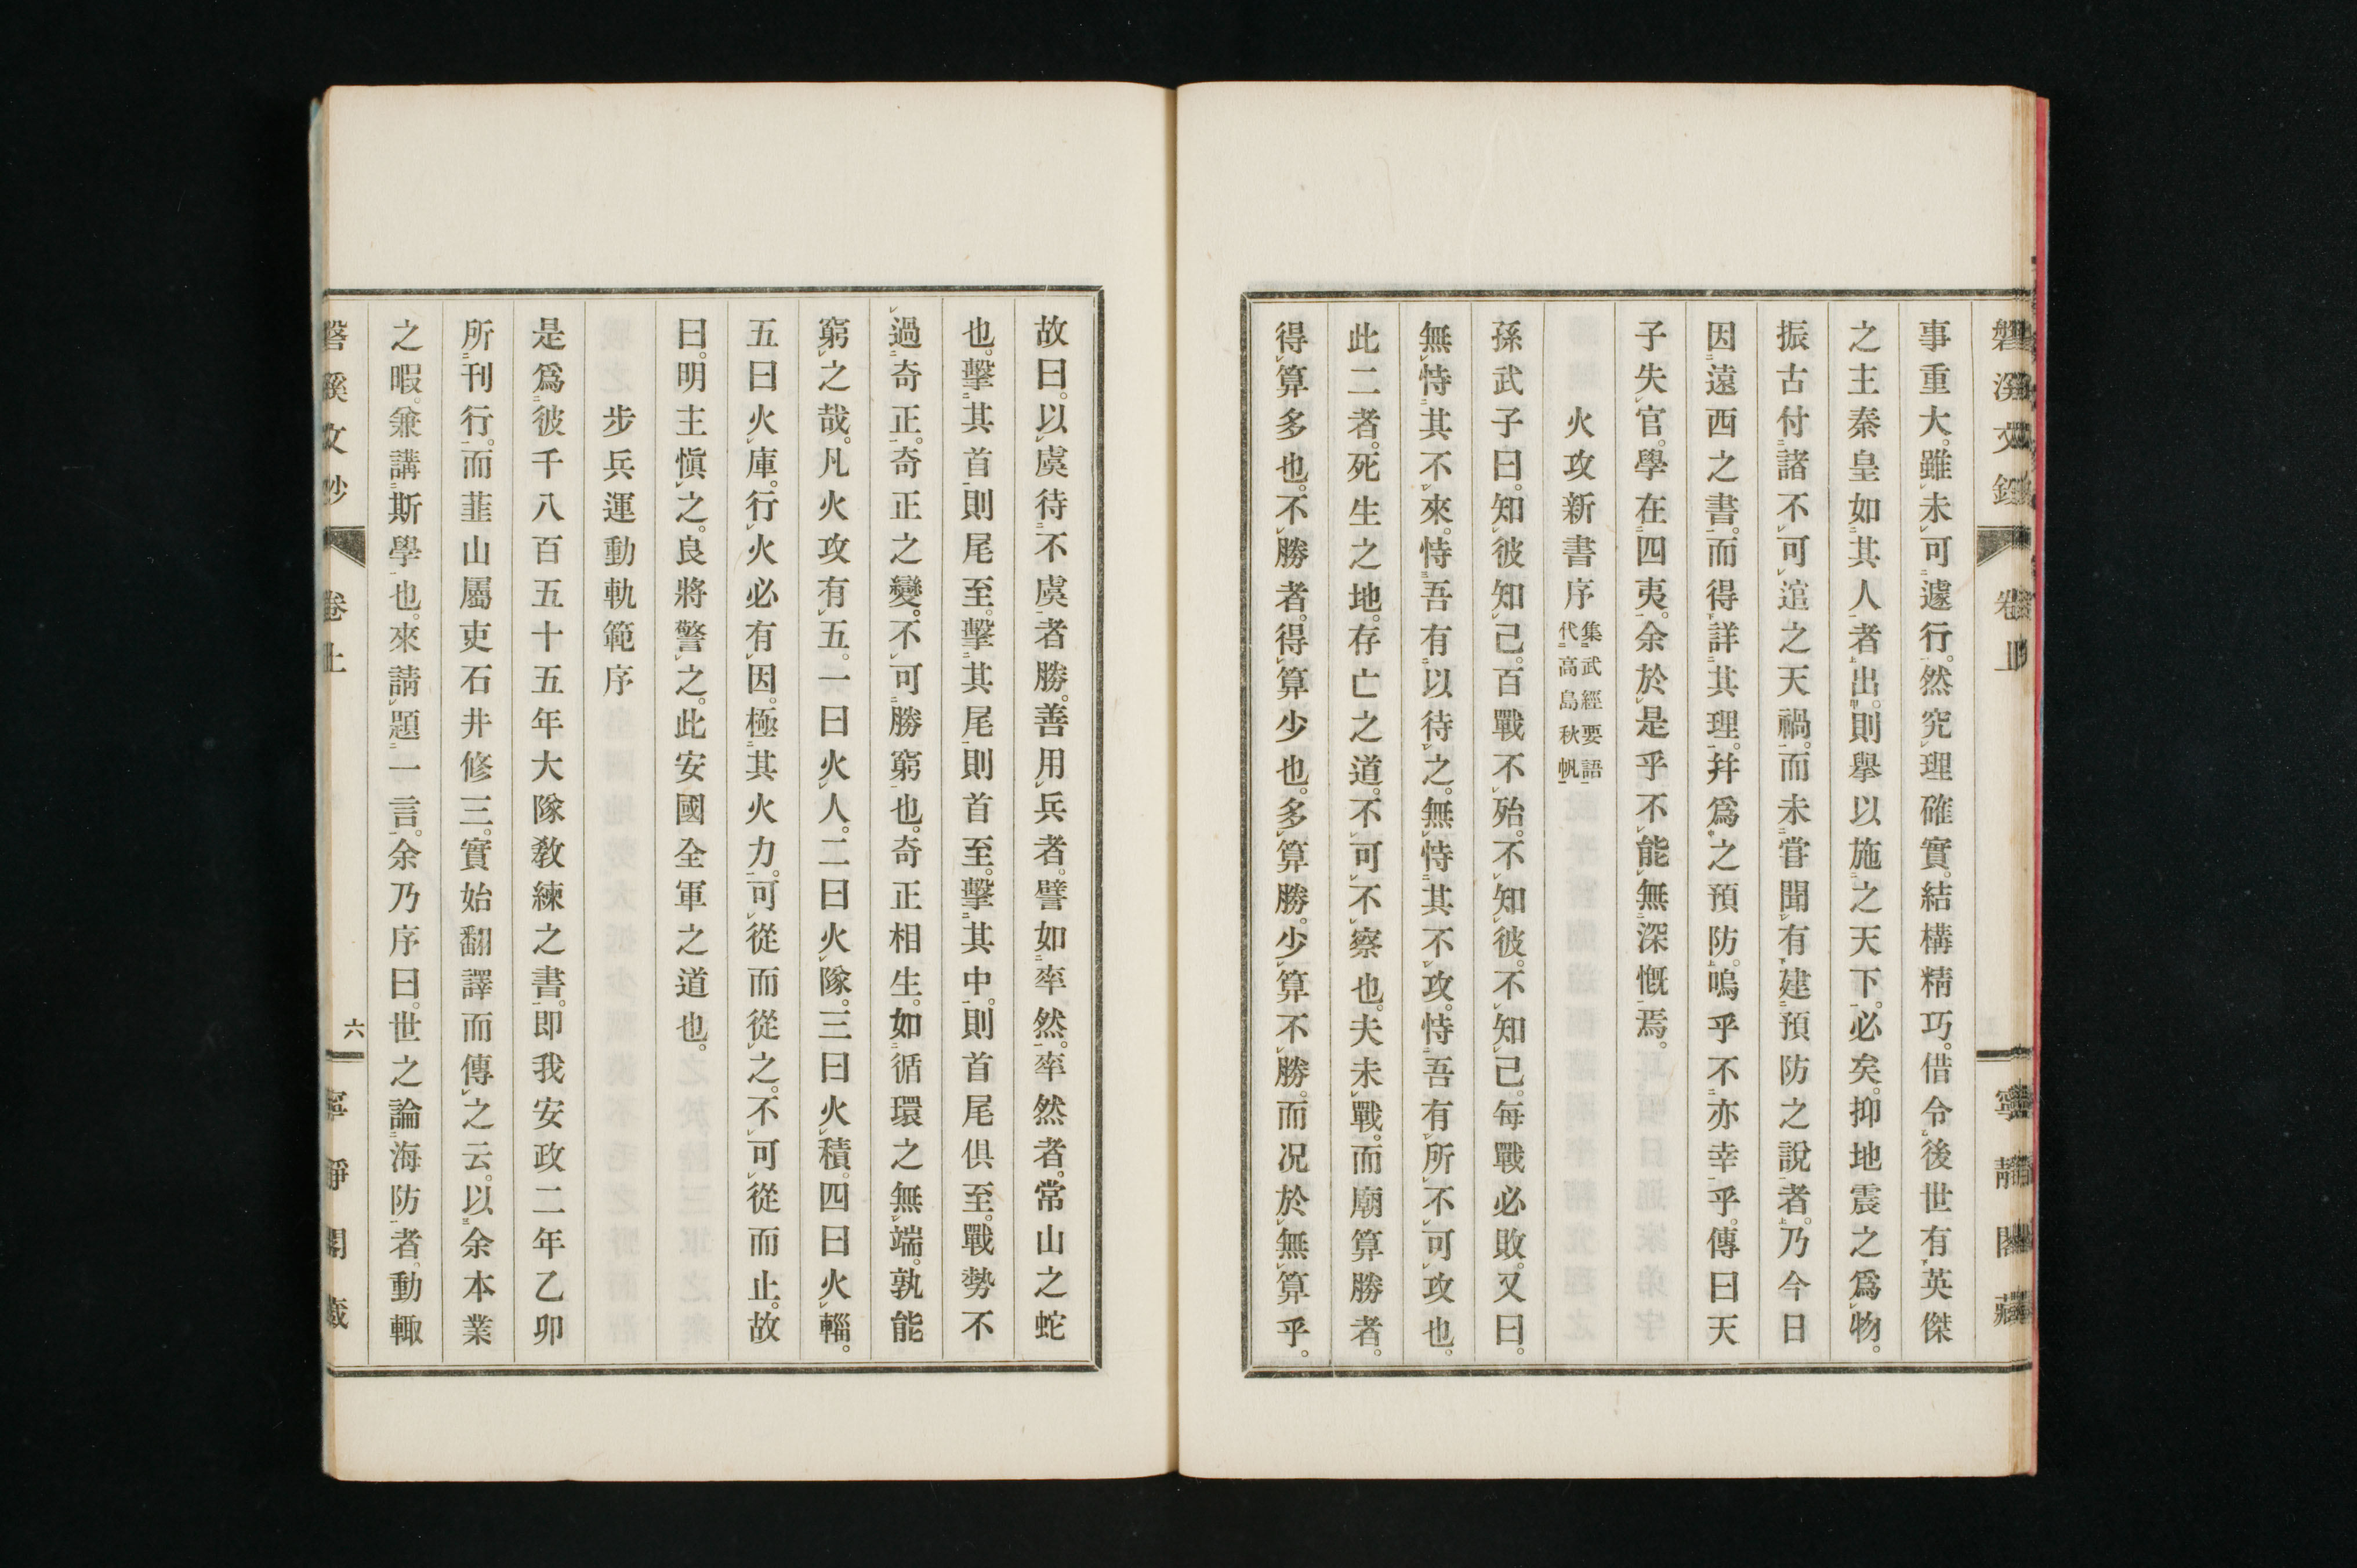 磐溪文鈔 卷上 寧靜閣藏
事重大。雖未可遽行。然究理確實。結構精巧。借令後世有英傑
之主秦皇如其人者出。則擧以施之天下。必矣。抑地震之爲物。
振古付諸不可逭之天禍。而未嘗聞有建預防之說者。乃今日
因遠西之書。而得詳其理。幷爲之預防。嗚乎不亦幸乎。傳曰天
子失官。學在四夷。余於是乎不能無深慨焉。
火攻新書序 集武經要語
代高島秋帆
孫武子曰。知彼知己。百戰不殆。不知彼。不知己。每戰必敗。又曰。
無恃其不來。恃吾有以待之。無恃其不攻。恃吾有所不可攻也。
此二者。死生之地。存亡之道。不可不察也。夫未戰。而廟算勝者。
得算多也。不勝者。得算少也。多算勝。少算不勝。而况於無算乎。
故曰。以虞待不虞者勝。善用兵者。譬如率然。率然者。常山之蛇
也。擊其首則尾至。擊其尾則首至。擊其中。則首尾俱至。戰勢不
過奇正。奇正之變。不可勝窮也。奇正相生。如循環之無端。孰能
窮之哉。凡火攻有五。一曰火人。二曰火隊。三曰火積。四曰火輜。
五曰火庫。行火必有因。極其火力。可從而從之。不可從而止。故
曰。明主愼之。良將警之。此安國全軍之道也。
步兵運動軌範序
是爲彼千八百五十五年大隊敎練之書。卽我安政二年乙卯
所刊行。而韮山屬吏石井修三。實始翻譯而傳之云。以余本業
之暇。兼講斯學也。來請題一言。余乃序曰。世之論海防者。動輙
磐溪文鈔 卷上 六 寧靜閣藏